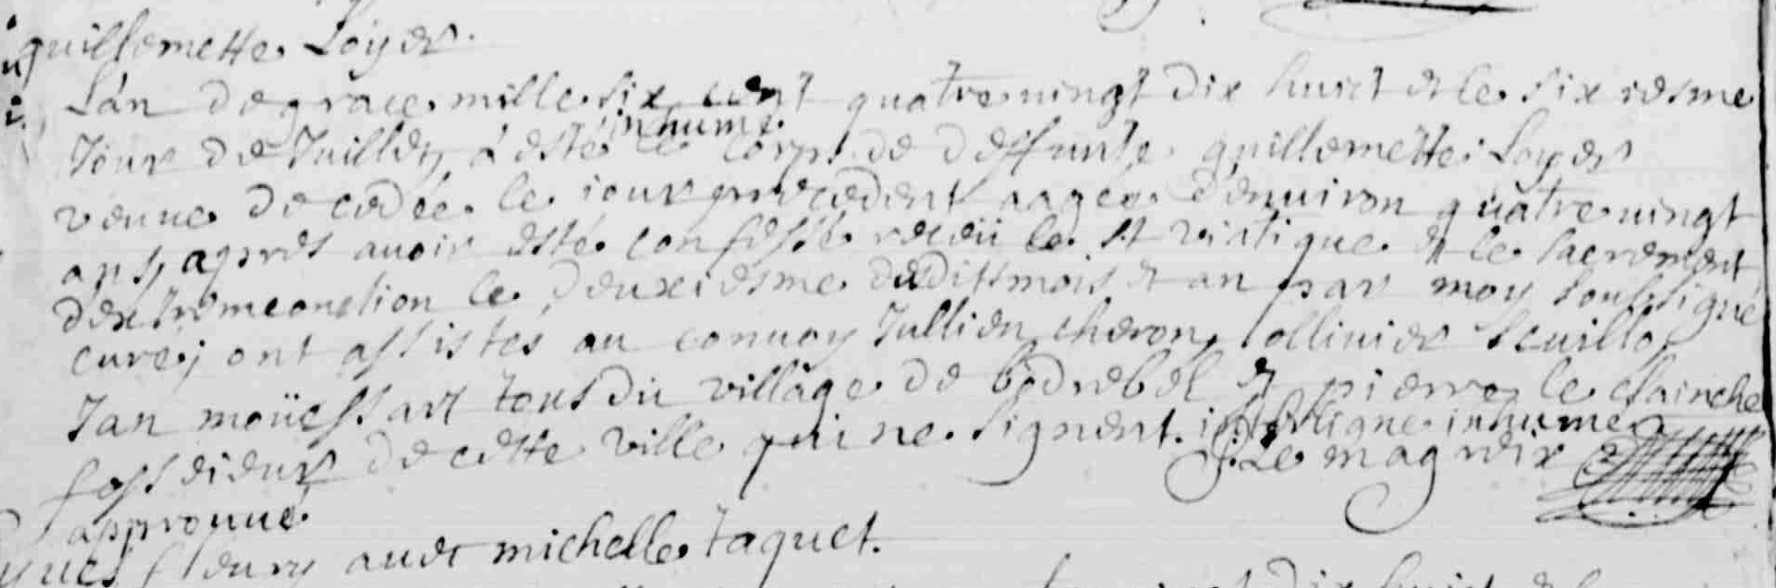 guillemette Loyer
L'an de grace mille six cent quatre vingt dix huict et le sixiesme
Jour de Juillet, a esté inhumé le corps de deffunte guillemette Loyer
veuue decedée le iour precedent aagée d'enuiron quatre vingt
ans, apres auoir esté confessé receü le st viatique et le sacrement
d'extremeonction le deuxiesme desdits mois et an par moy soubsigné
curé; ont assistés au conuoy Jullien cheron, ollivier
Jan moüessart tous du village de bodrebel et pierre le clainche
fossoieur de cette ville qui ne signent. interligne inhume
approuué. Le magueix
yues fleury auec michelle Jaquet.
dix huict